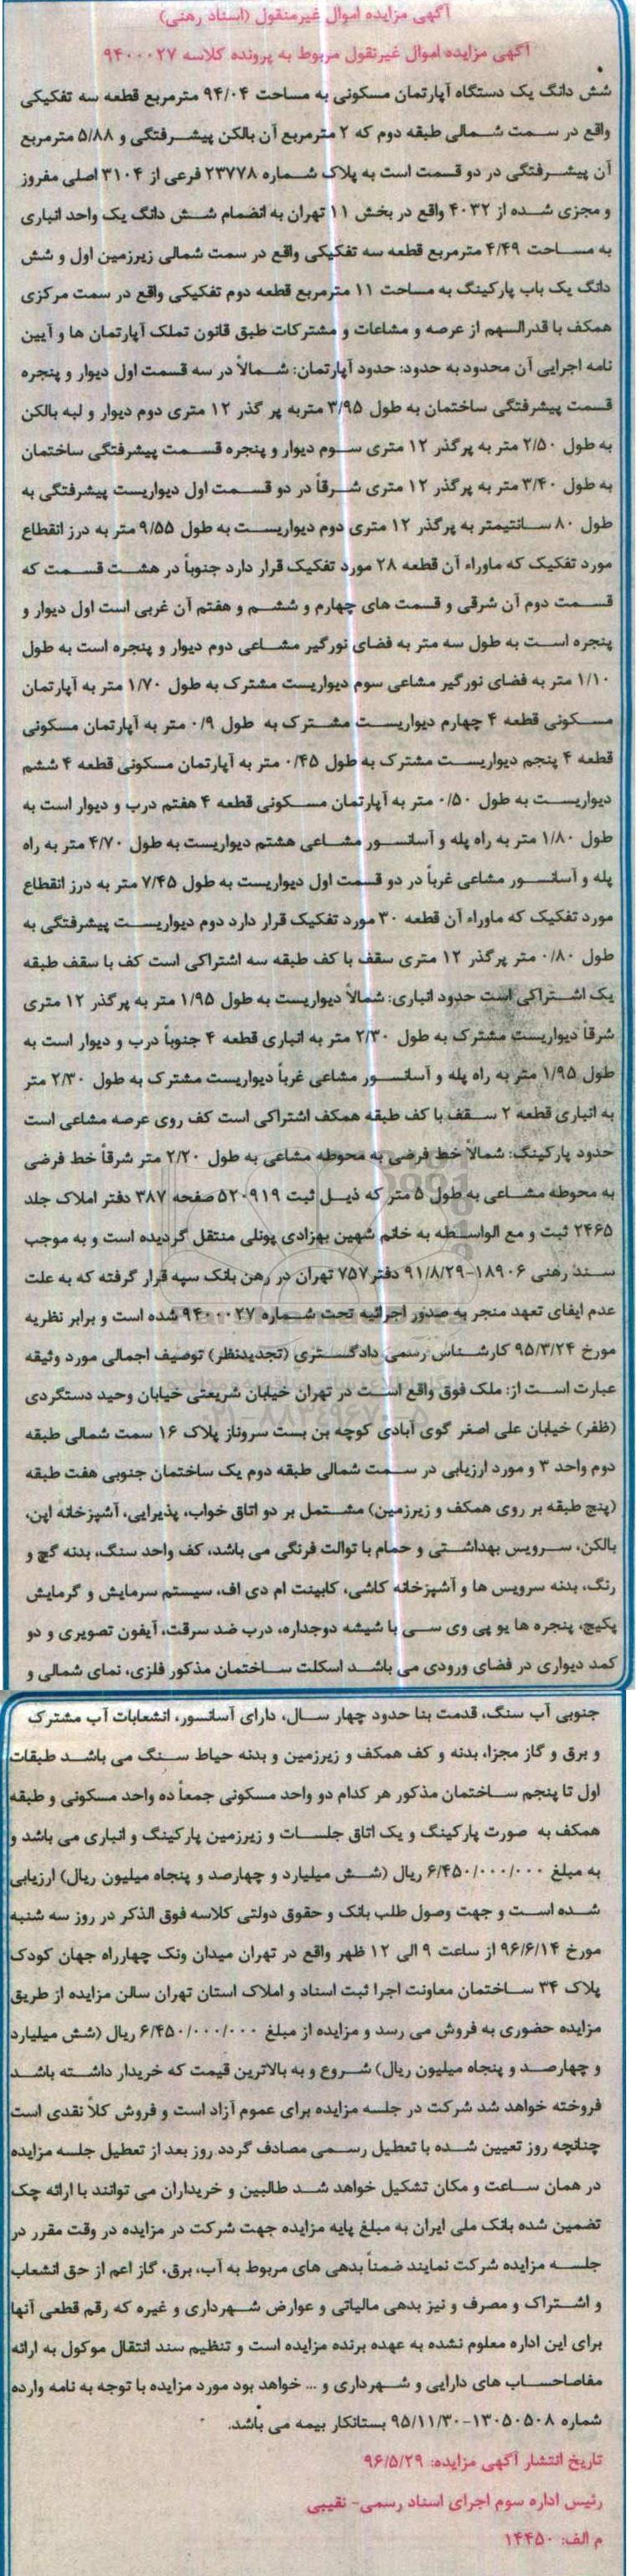 آگهی مزایده اموال غیرمنقول (اسناد رهنی)
آگهی مزایده اموال غیرنقول مربوط به پرونده کلاسه ۹۴۰۰۰۲۷
شش دانگ یک دستگاه آپارتمان مسکونی به مساحت ۹۴/۰۴ مترمربع قطعه سه تفکیکی
واقع در سمت شمالی طبقه دوم که ۲ مترمربع آن بالکن پیشرفتگی و ۵/۸۸ مترمربع
آن پیشرفتگی در دو قسمت است به پلاک شماره ۲۳۷۷۸ فرعی از ۳۱۰۴ اصلی مفروز
و مجزی شده از ۴۰۳۲ واقع در بخش ۱۱ تهران به انضمام شش دانگ یک واحد انباری
به مساحت ۴/۴۹ مترمربع قطعه سه تفکیکی واقع در سمت شمالی زیرزمین اول و شش
دانگ یک باب پارکینگ به مساحت ۱۱ مترمربع قطعه دوم تفکیکی واقع در سمت مرکزی
همکف با قدرالسهم از عرصه و مشاعات و مشترکات طبق قانون تملک آپارتمان ها و آیین
نامه اجرایی آن محدود به حدود: حدود آپارتمان: شمالاً در سه قسمت اول دیوار و پنجره
قسمت پیشرفتگی ساختمان به طول ۳/۹۵ متربه پر گذر ۱۲ متری دوم دیوار و لبه بالکن
به طول ۲/۵۰ متر به پرگذر ۱۲ متری سوم دیوار و پنجره قسمت پیشرفتگی ساختمان
به طول ۳/۴۰ متر به پرگذر ۱۲ متری شرقاً در دو قسمت اول دیواریست پیشرفتگی به
طول ۸۰ سانتیمتر به پرگذر ۱۲ متری دوم دیواریست به طول ۹/۵۵ متر به درز انقطاع
مورد تفکیک که ماوراء آن قطعه ۲۸ مورد تفکیک قرار دارد جنوباً در هشت قسمت که
قسمت دوم آن شرقی و قسمت های چهارم و ششم و هفتم آن غربی است اول دیوار و
پنجره است به طول سه متر به فضای نورگیر مشاعی دوم دیوار و پنجره است به طول
۱/۱۰ متر به فضای نورگیر مشاعی سوم دیواریست مشترک به طول ۱/۷۰ متر به آپارتمان
مسکونی قطعه ۴ چهارم دیواریست مشترک به طول ۰/۹ متر به آپارتمان مسکونی
قطعه ۴ پنجم دیواریست مشترک به طول ۰/۴۵ متر به آپارتمان مسکونی قطعه ۴ ششم
دیواریست به طول ۰/۵۰ متر به آپارتمان مسکونی قطعه ۴ هفتم درب و دیوار است به
طول ۱/۸۰ متر به راه پله و آسانسور مشاعی هشتم دیواریست به طول ۴/۷۰ متر به راه
پله و آسانسور مشاعی غرباً در دو قسمت اول دیواریست به طول ۷/۴۵ متر به درز انقطاع
مورد تفکیک که ماوراء آن قطعه ۳۰ مورد تفکیک قرار دارد دوم دیواریست پیشرفتگی به
طول ۰/۸۰ متر پرگذر ۱۲ متری سقف با کف طبقه سه اشتراکی است کف با سقف طبقه
یک اشتراکی است حدود انباری: شمالاً دیواریست به طول ۱/۹۵ متر به پرگذر ۱۲ متری
شرقاً دیواریست مشترک به طول ۲/۳۰ متر به انباری قطعه ۴ جنوباً درب و دیوار است به
طول ۱/۹۵ متر به راه پله و آسانسور مشاعی غرباً دیواریست مشترک به طول ۲/۳۰ متر
به انباری قطعه ۲ سقف با کف طبقه همکف اشتراکی است کف روی عرصه مشاعی است
حدود پارکینگ: شمالاً خط فرضی به محوطه مشاعی به طول ۲/۲۰ متر شرقاً خط فرضی
به محوطه مشاعی به طول ۵ متر که ذیل ثبت ۵۲۰۹۱۹ صفحه ۳۸۷ دفتر املاک جلد
۲۴۶۵ ثبت و مع الواسطه به خانم شهین بهزادی پونلی منتقل گردیده است و به موجب
سند رهنی ۱۸۹۰۶-۹۱/۸/۲۹ دفتر ۷۵۷ تهران در رهن بانک سپه قرار گرفته که به علت
عدم ایفای تعهد منجر به صدور اجرائیه تحت شماره ۹۴۰۰۰۲۷ شده است و برابر نظریه
مورخ ۹۵/۳/۲۴ کارشناس رسمی دادگستری (تجدیدنظر) توصیف اجمالی مورد وثیقه
عبارت است از: ملک فوق واقع است در تهران خیابان شریعتی خیابان وحید دستگردی
(ظفر) خیابان علی اصغر گوی آبادی کوچه بن بست سروناز پلاک ۱۶ سمت شمالی طبقه
دوم واحد ۳ و مورد ارزیابی در سمت شمالی طبقه دوم یک ساختمان جنوبی هفت طبقه
(پنج طبقه بر روی همکف و زیرزمین) مشتمل بر دو اتاق خواب، پذیرایی، آشپزخانه اپن،
بالکن، سرویس بهداشتی و حمام با توالت فرنگی می باشد، کف واحد سنگ، بدنه گچ و
رنگ، بدنه سرویس ها و آشپزخانه کاشی، کابینت ام دی اف، سیستم سرمایش و گرمایش
پکیج، پنجره ها یو پی وی سی با شیشه دوجداره، درب ضد سرقت، آیفون تصویری و دو
کمد دیواری در فضای ورودی می باشد اسکلت ساختمان مذکور فلزی، نمای شمالی و
جنوبی آب سنگ، قدمت بنا حدود چهار سال، دارای آسانسور، انشعابات آب مشترک
و برق و گاز مجزا، بدنه و کف همکف و زیرزمین و بدنه حیاط سنگ می باشد طبقات
اول تا پنجم ساختمان مذکور هر کدام دو واحد مسکونی جمعاً ده واحد مسکونی و طبقه
همکف به صورت پارکینگ و یک اتاق جلسات و زیرزمین پارکینگ و انباری می باشد و
به مبلغ ۶/۴۵۰/۰۰۰/۰۰۰ ریال (شش میلیارد و چهارصد و پنجاه میلیون ریال) ارزیابی
شده است و جهت وصول طلب بانک و حقوق دولتی کلاسه فوق الذکر در روز سه شنبه
مورخ ۹۶/۶/۱۴ از ساعت ۹ الی ۱۲ ظهر واقع در تهران میدان ونک چهارراه جهان کودک
پلاک ۳۴ ساختمان معاونت اجرا ثبت اسناد و املاک استان تهران سالن مزایده از طریق
مزایده حضوری به فروش می رسد و مزایده از مبلغ ۶/۴۵۰/۰۰۰/۰۰۰ ریال (شش میلیارد
و چهارصد و پنجاه میلیون ریال) شروع و به بالاترین قیمت که خریدار داشته باشد
فروخته خواهد شد شرکت در جلسه مزایده برای عموم آزاد است و فروش کلاً نقدی است
چنانچه روز تعیین شده با تعطیل رسمی مصادف گردد روز بعد از تعطیل جلسه مزایده
در همان ساعت و مکان تشکیل خواهد شد طالبین و خریداران می توانند با ارائه چک
تضمین شده بانک ملی ایران به مبلغ پایه مزایده جهت شرکت در مزایده در وقت مقرر در
جلسه مزایده شرکت نمایند ضمناً بدهی های مربوط به آب، برق، گاز اعم از حق انشعاب
و اشتراک و مصرف و نیز بدهی مالیاتی و عوارض شهرداری و غیره که رقم قطعی آنها
برای این اداره معلوم نشده به عهده برنده مزایده است و تنظیم سند انتقال موکول به ارائه
مفاصاحساب های دارایی و شهرداری و ... خواهد بود مورد مزایده با توجه به نامه وارده
شماره ۱۳۰۵۰۵۰۸-۹۵/۱۱/۳۰ بستانکار بیمه می باشد.
تاریخ انتشار آگهی مزایده: ۹۶/۵/۲۹
رئیس اداره سوم اجرای اسناد رسمی- نقیبی
م الف: ۱۴۴۵۰